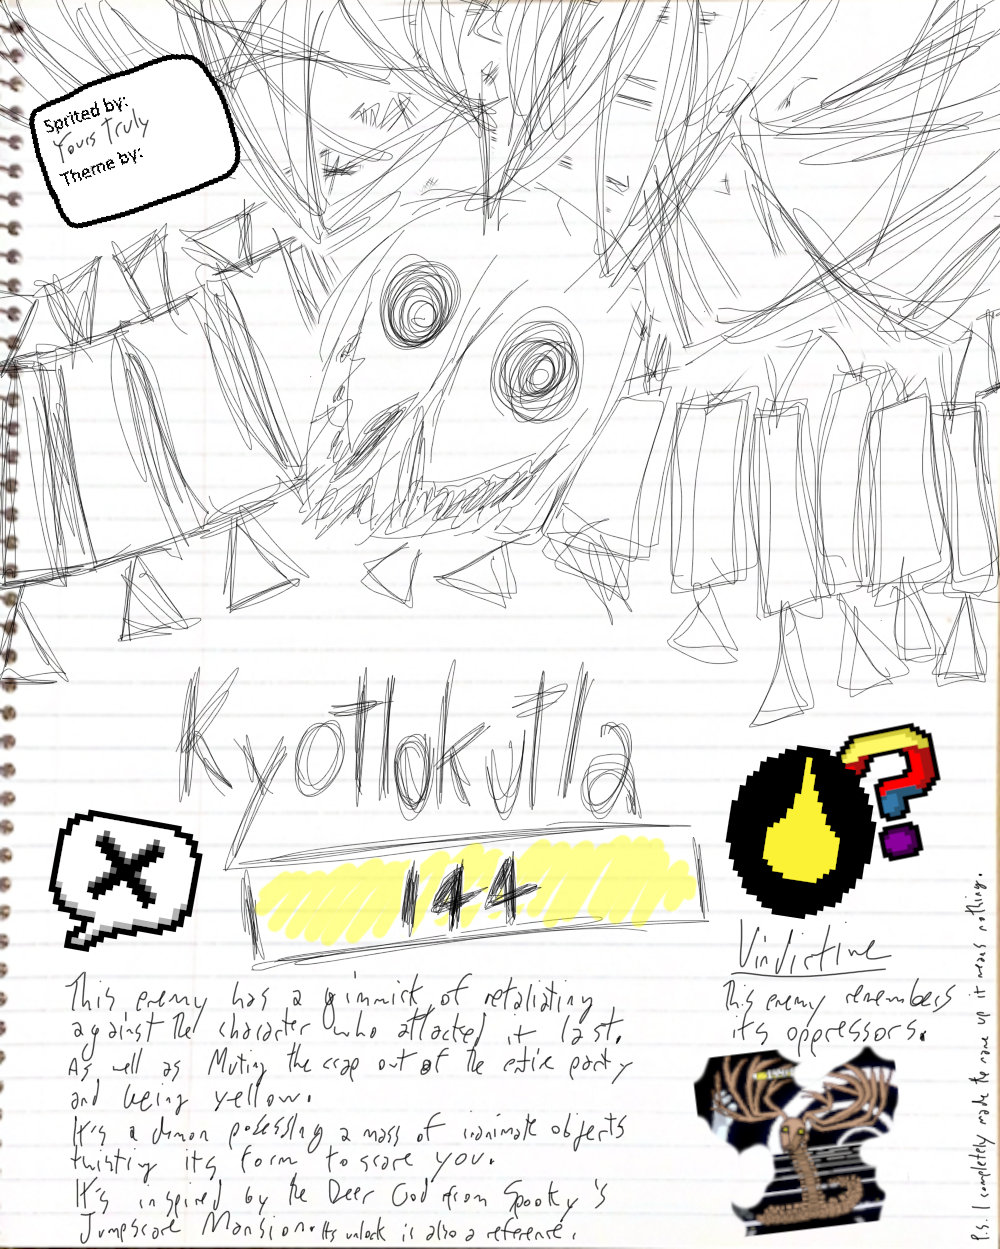 Sprited by:
Yours Truly
Theme by:
Kyotlokutla
144
Vindictive
This enemy has a gimmick of retaliating
against the character who attacked it last.
As well as Muting the crap out of the entire party
and being yellow.
It's a demon posessing a mass of inanimate objects
twisting its form to scare you.
It's inspired by the Deer God from Spooky's
Jumpscare Mansion. Its unlock is also a reference.
This enemy remembers
its oppressors.
P.s. I completely made the name up it means nothing.